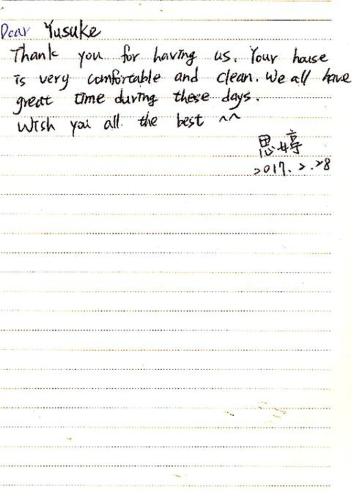 Dear Yusuke
Thank you for having us. Your house
is very comfortable and clean. We all have
great time during these days.
Wish you all the best ^^
思婷
2017.2.28